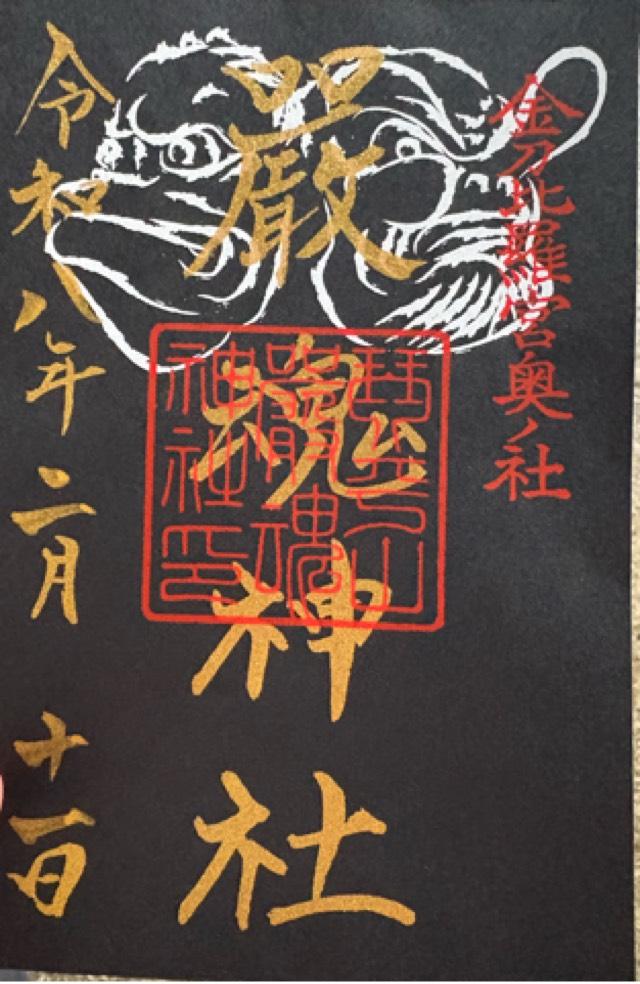 金刀比羅宮奥ノ社
嚴魂神社
琴平山
嚴魂
神社印
令和八年二月
十一日